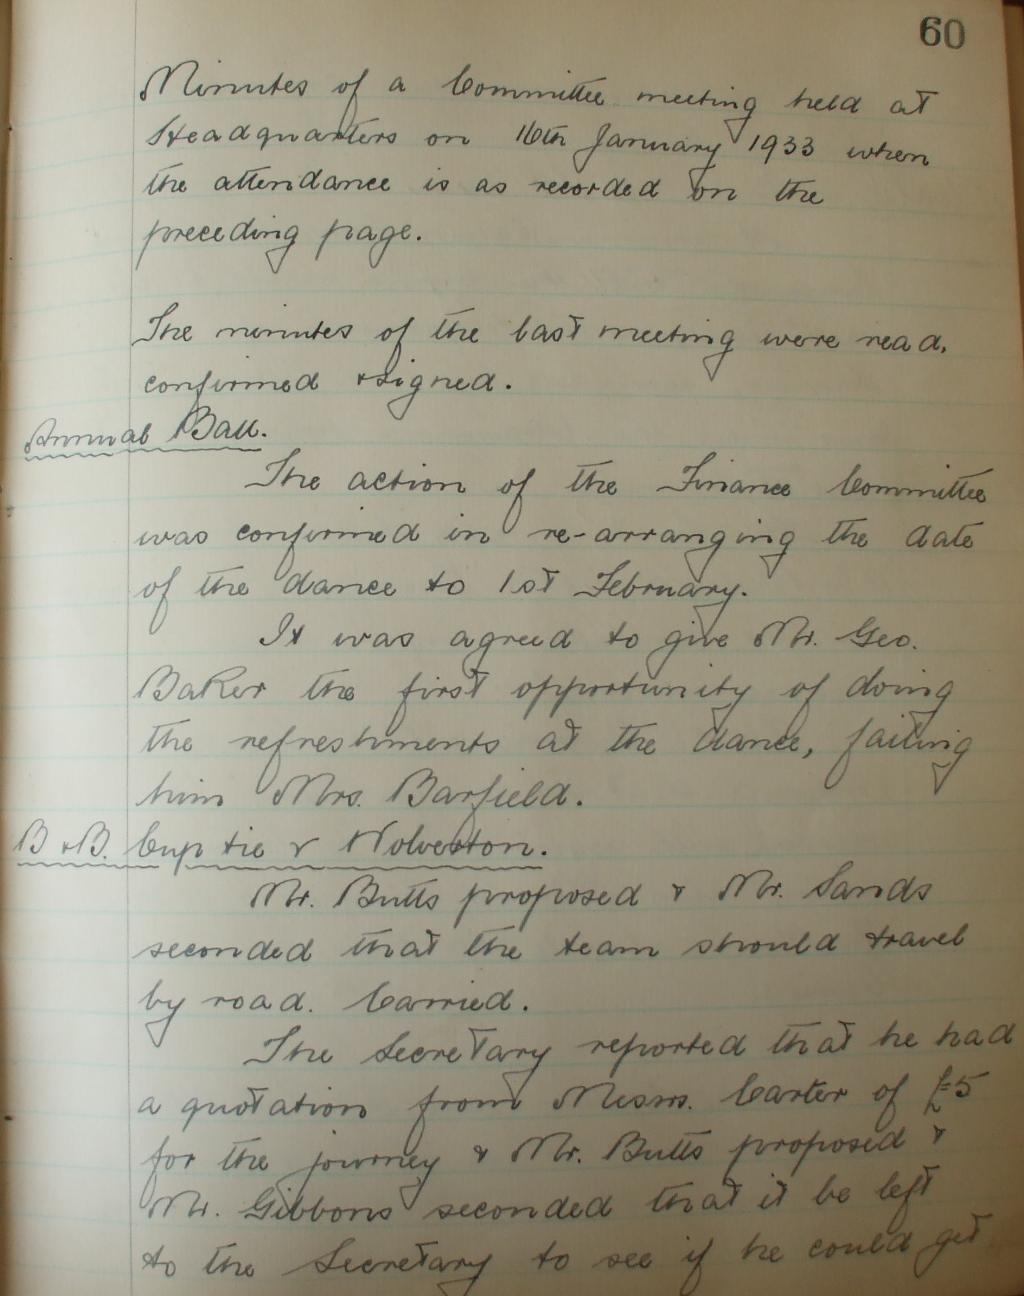 60
Minutes of a Committee meeting held at
Headquarters on 16th January 1933 when
the attendance is as recorded on the
preceding page.
The minutes of the last meeting were read,
confirmed & signed.
Annual Ball.
The action of the Finance Committee
was confirmed in re-arranging the date
of the dance to 1st February.
It was agreed to give Mr. Geo.
Baker the first opportunity of doing
the refreshments at the dance, failing
him Mrs. Barfield.
B & B. Cup tie v Wolverton.
Mr. Butts proposed & Mr. Sands
seconded that the team should travel
by road. Carried.
The Secretary reported that he had
a quotation from Messrs. Carter of £5
for the journey & Mr. Butts proposed &
Mr. Gibbons seconded that it be left
to the Secretary to see if he could get